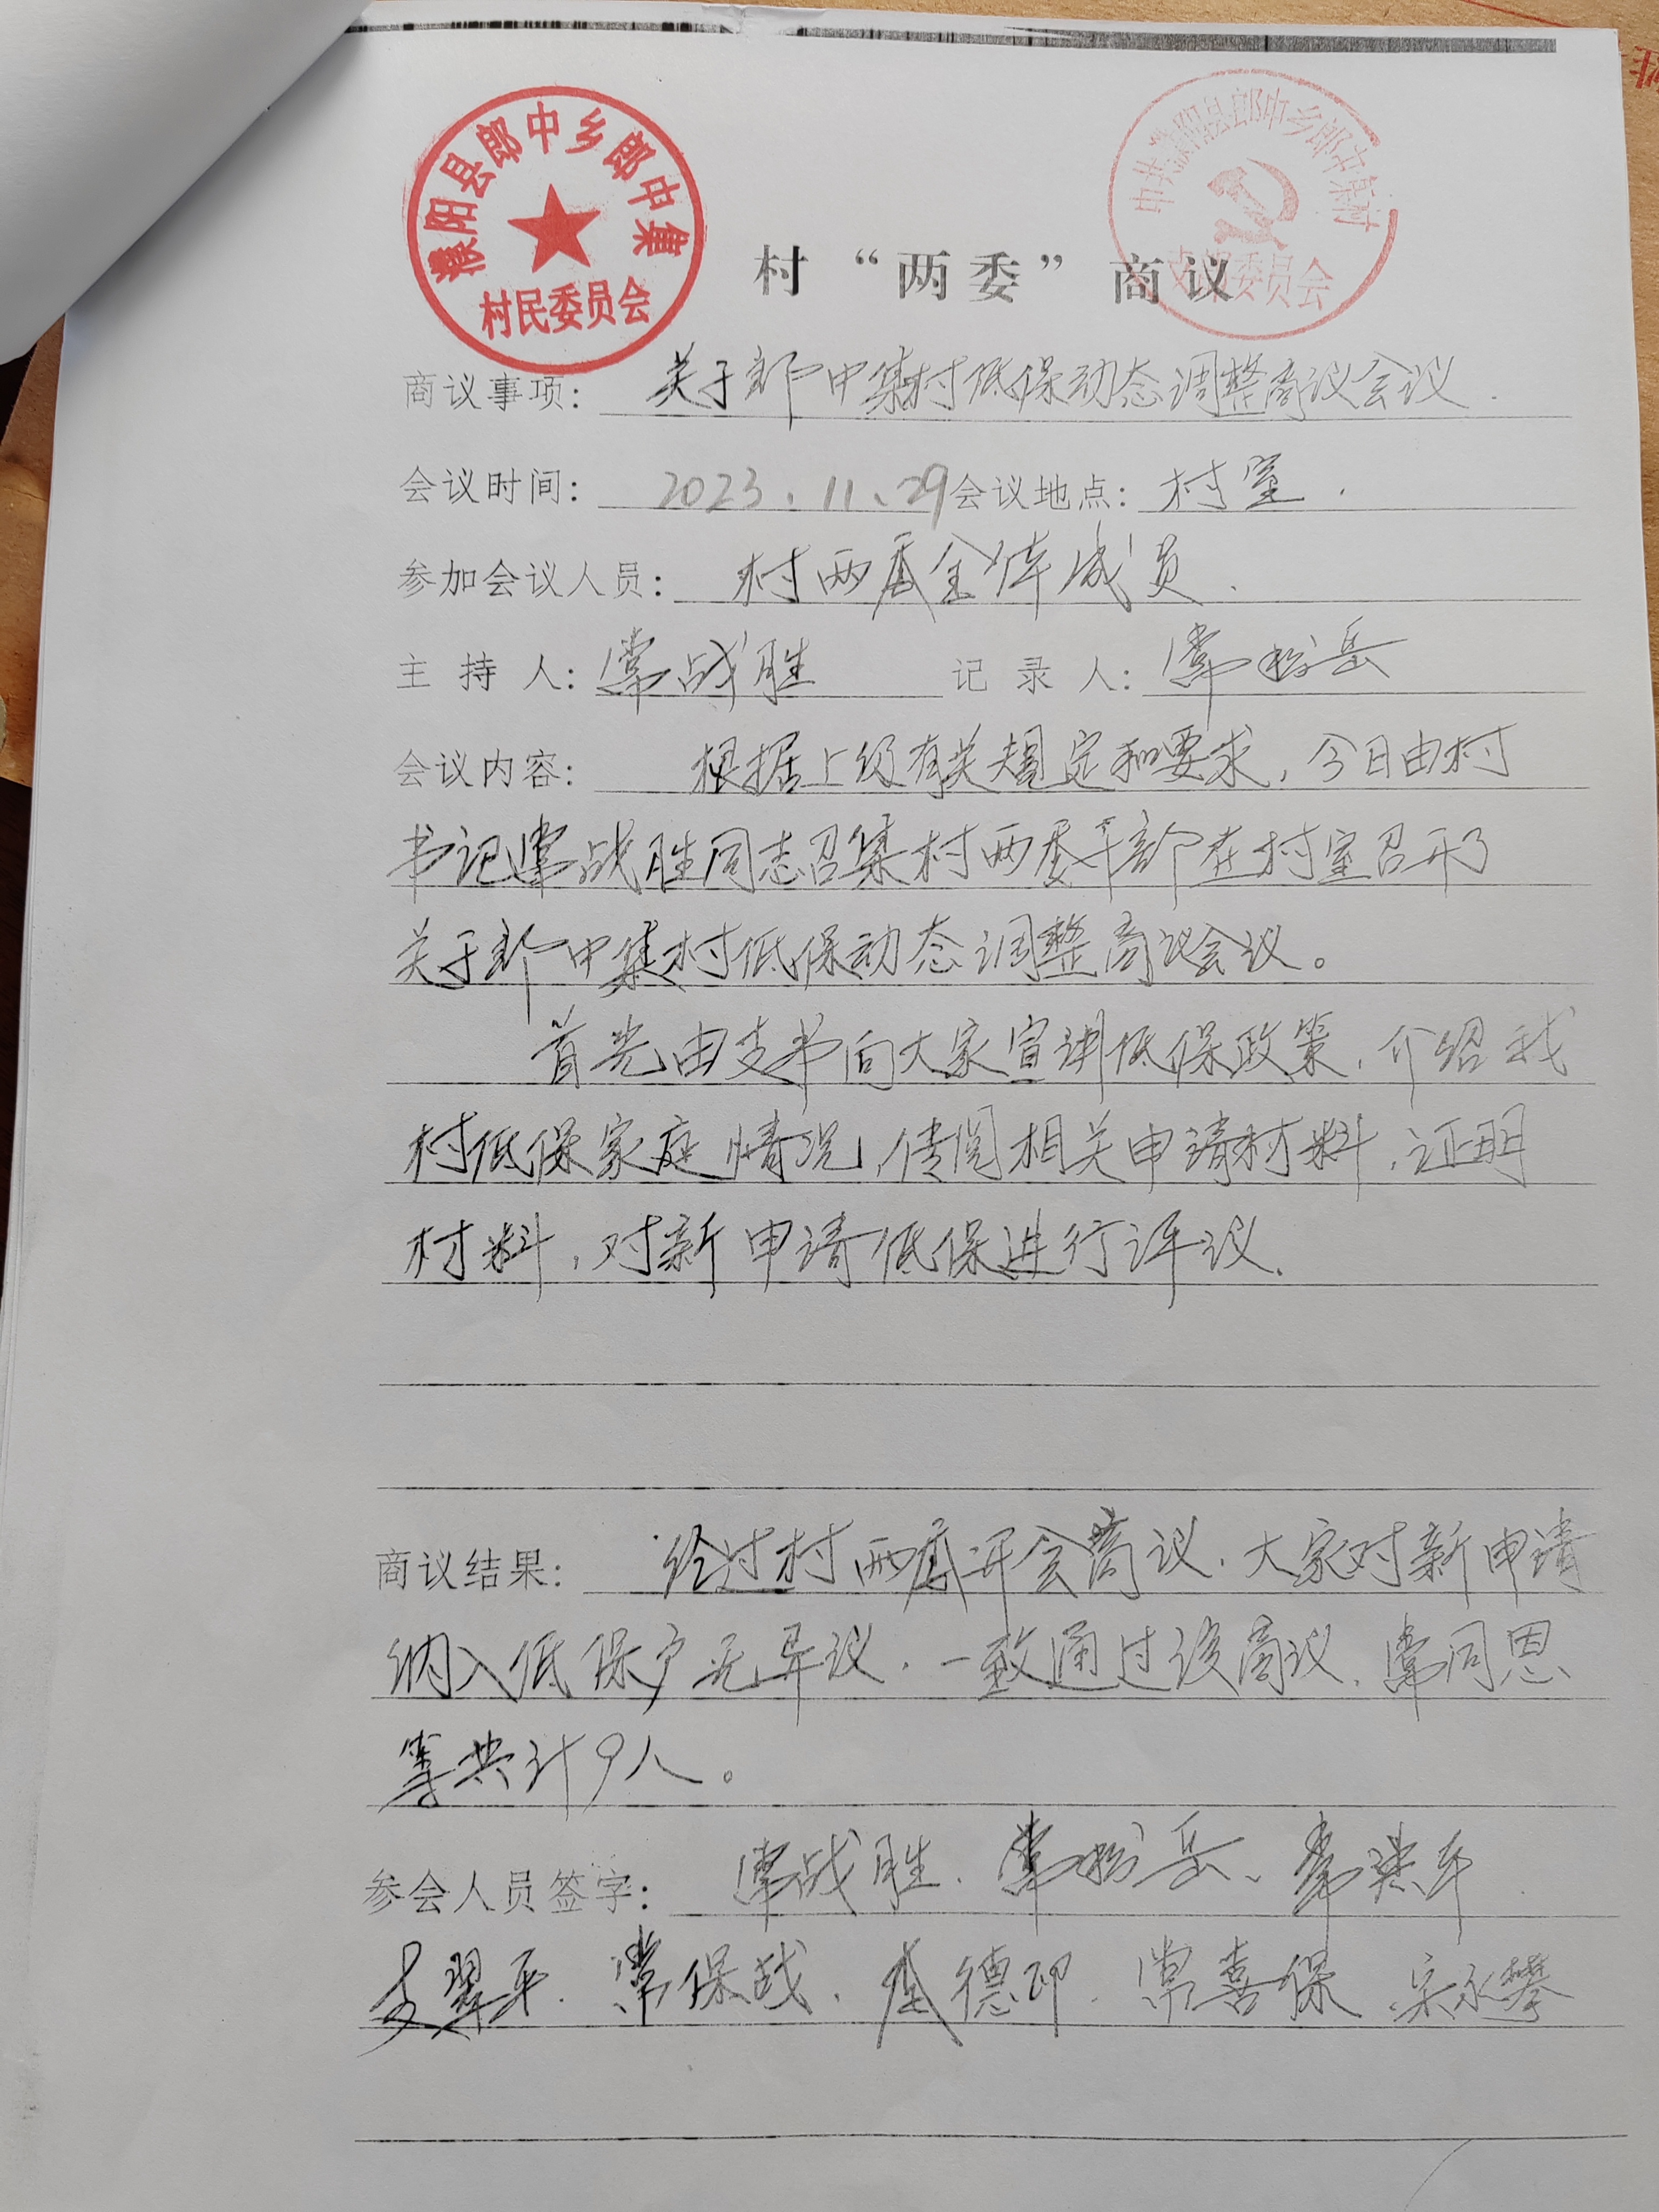 濮阳县郎中乡郎中集
村民委员会
中共濮阳县郎中乡郎中集村
支部委员会
村“两委”商议
商议事项：关于郎中集村低保动态调整商议会议.
会议时间：2023.11.29会议地点：村室.
参加会议人员：村两委全体成员.
主 持 人：常战胜 记 录 人：常 岳
会议内容：根据上级有关规定和要求，今日由村
书记常战胜同志召集村两委干部在村室召开了
关于郎中集村低保动态调整商议会议。
首先由支书向大家宣讲低保政策，介绍我
村低保家庭情况，传阅相关申请材料，证明
材料，对新申请低保进行评议.
商议结果：经过村两委开会商议.大家对新申请
纳入低保户无异议.一致通过该商议.常同恩
等共计9人。
参会人员签字：常战胜、常 岳、常
翠平.常保战. 德印.常喜保.宋永攀